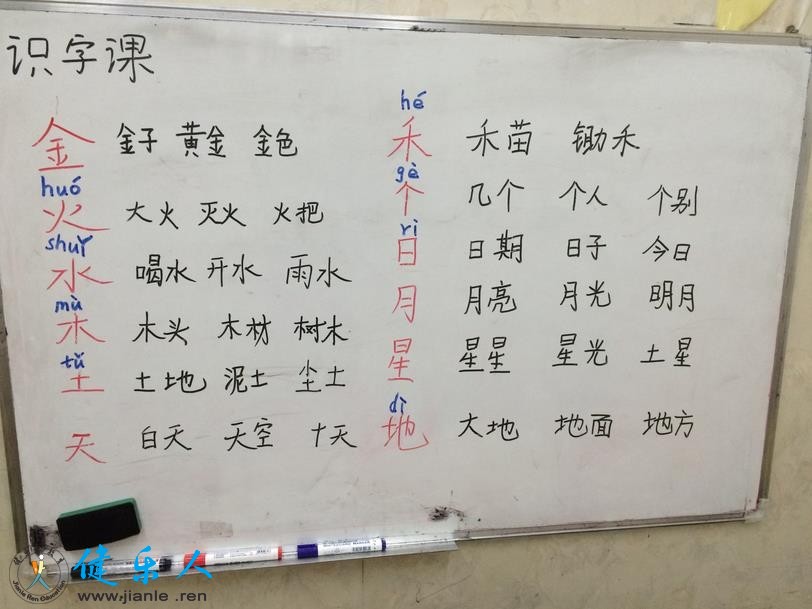 识字课
金 金子 黄金 金色
huó
火 大火 灭火 火把
shuǐ
水 喝水 开水 雨水
mù
木 木头 木材 树木
tǔ
土 土地 泥土 尘土
天 白天 天空 十天
hé
禾 禾苗 锄禾
gè
个 几个 个人 个别
rì
日 日期 日子 今日
月 月亮 月光 明月
星 星星 星光 土星
dì
地 大地 地面 地方
健乐人
www.jianle.ren